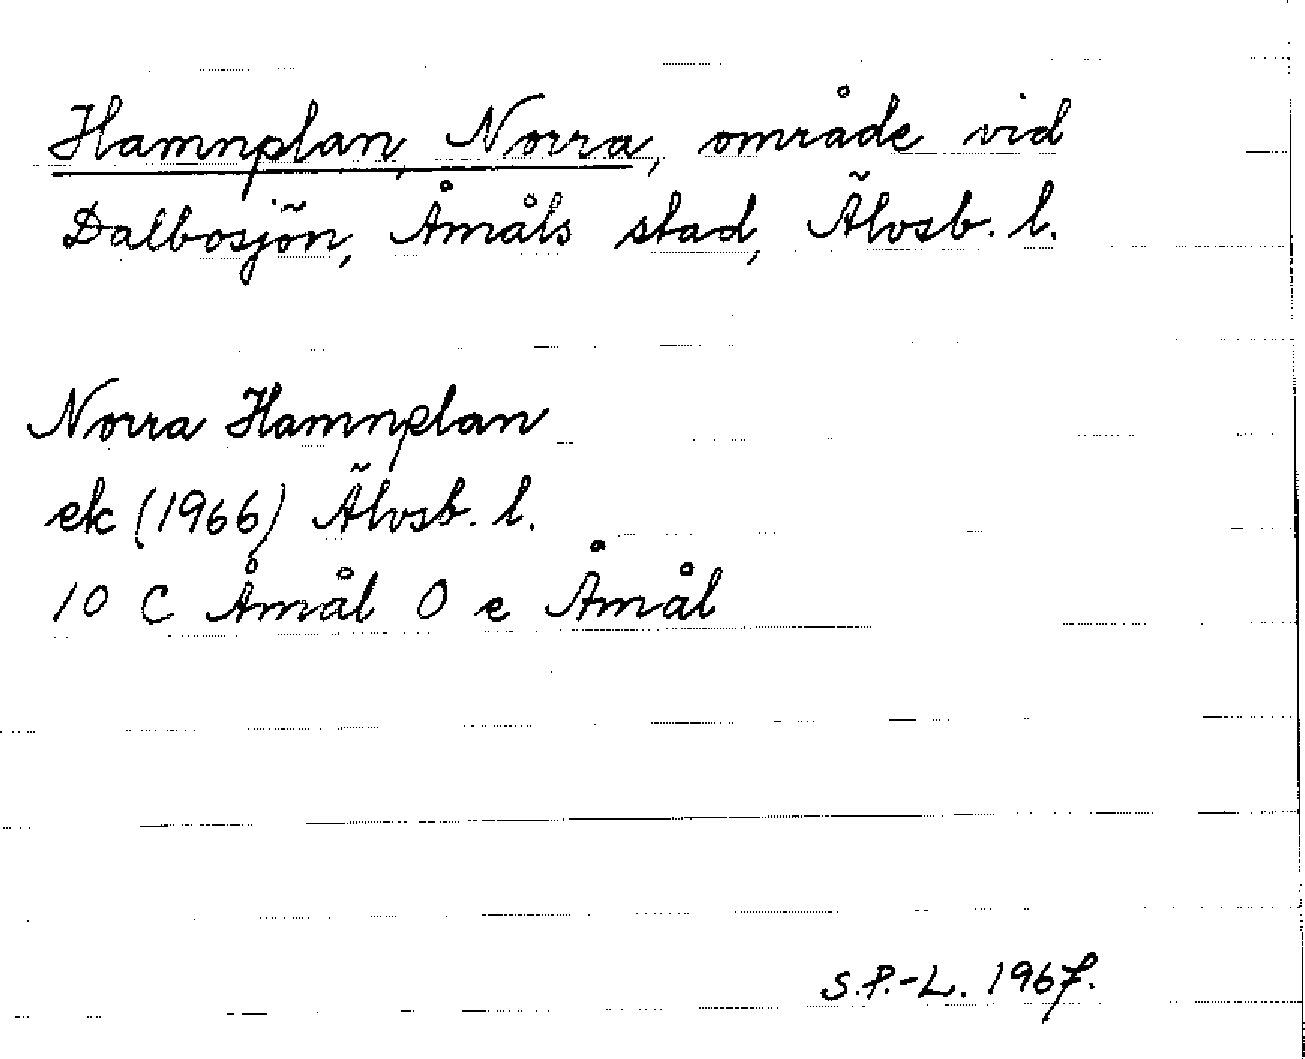 Hamnplan, Norra, område vid
Dalbosjön, Åmåls stad, Älvsb. l.
Norra Hamnplan
ek (1966) Älvsb. l.
10 C Åmål O e Åmål
S.P.-L. 1967.